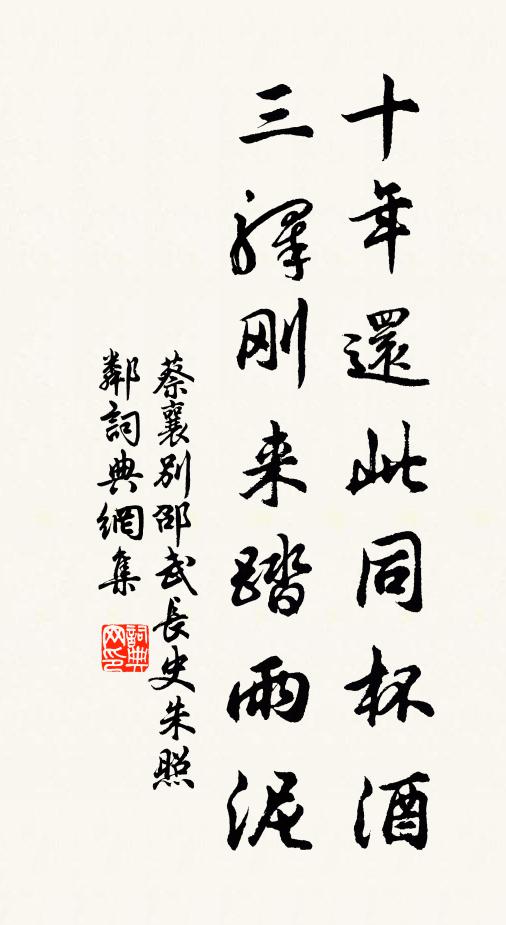 十年還此同杯酒
三驛刚来踏雨泥
蔡襄別邵武長史朱照
鄰詞典網集
詞典
网印